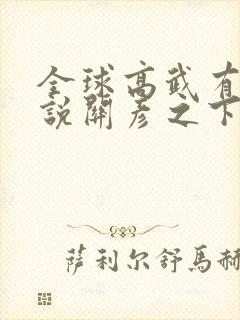 全球高武有
說關彥之下
萨利尔舒马赫